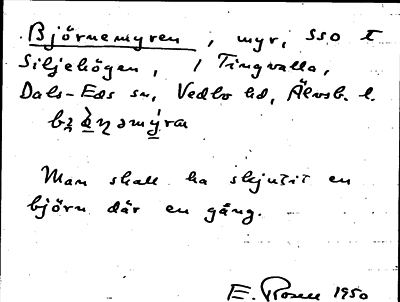 Björnemyren, myr, SSO t
Siljehögen, i Tingvalla,
Dals-Eds sn, Vedbo hd, Älvsb. l.
Man skall ha skjutit en
björn där en gång.
E. Rosell 1950